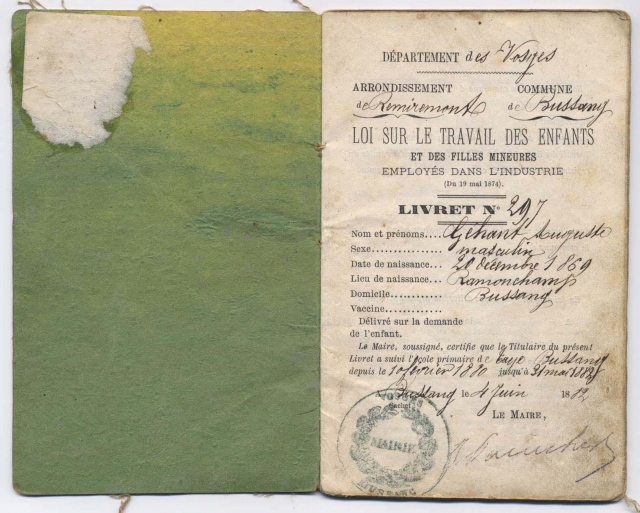 DÉPARTEMENT des Vosges
ARRONDISSEMENT COMMUNE
de Remiremont de Bussang
LOI SUR LE TRAVAIL DES ENFANTS
ET DES FILLES MINEURES
EMPLOYÉS DANS L'INDUSTRIE
(Du 19 mai 1874).
LIVRET N° 297
Nom et prénoms.... Géhant Auguste
Sexe............... masculin
Date de naissance... 20 décembre 1869
Lieu de naissance... Ramonchamp
Domicile............ Bussang
Vaccine............
Délivré sur la demande
de l'enfant.
Le Maire, soussigné, certifie que le Titulaire du présent
Livret a suivi l'école primaire de Bussang
depuis le 10 février 1880 jusqu'à 31 mai 1882
A Bussang le 4 Juin 1882
Cachet
LE MAIRE,
VOSGES
MAIRIE
BUSSANG